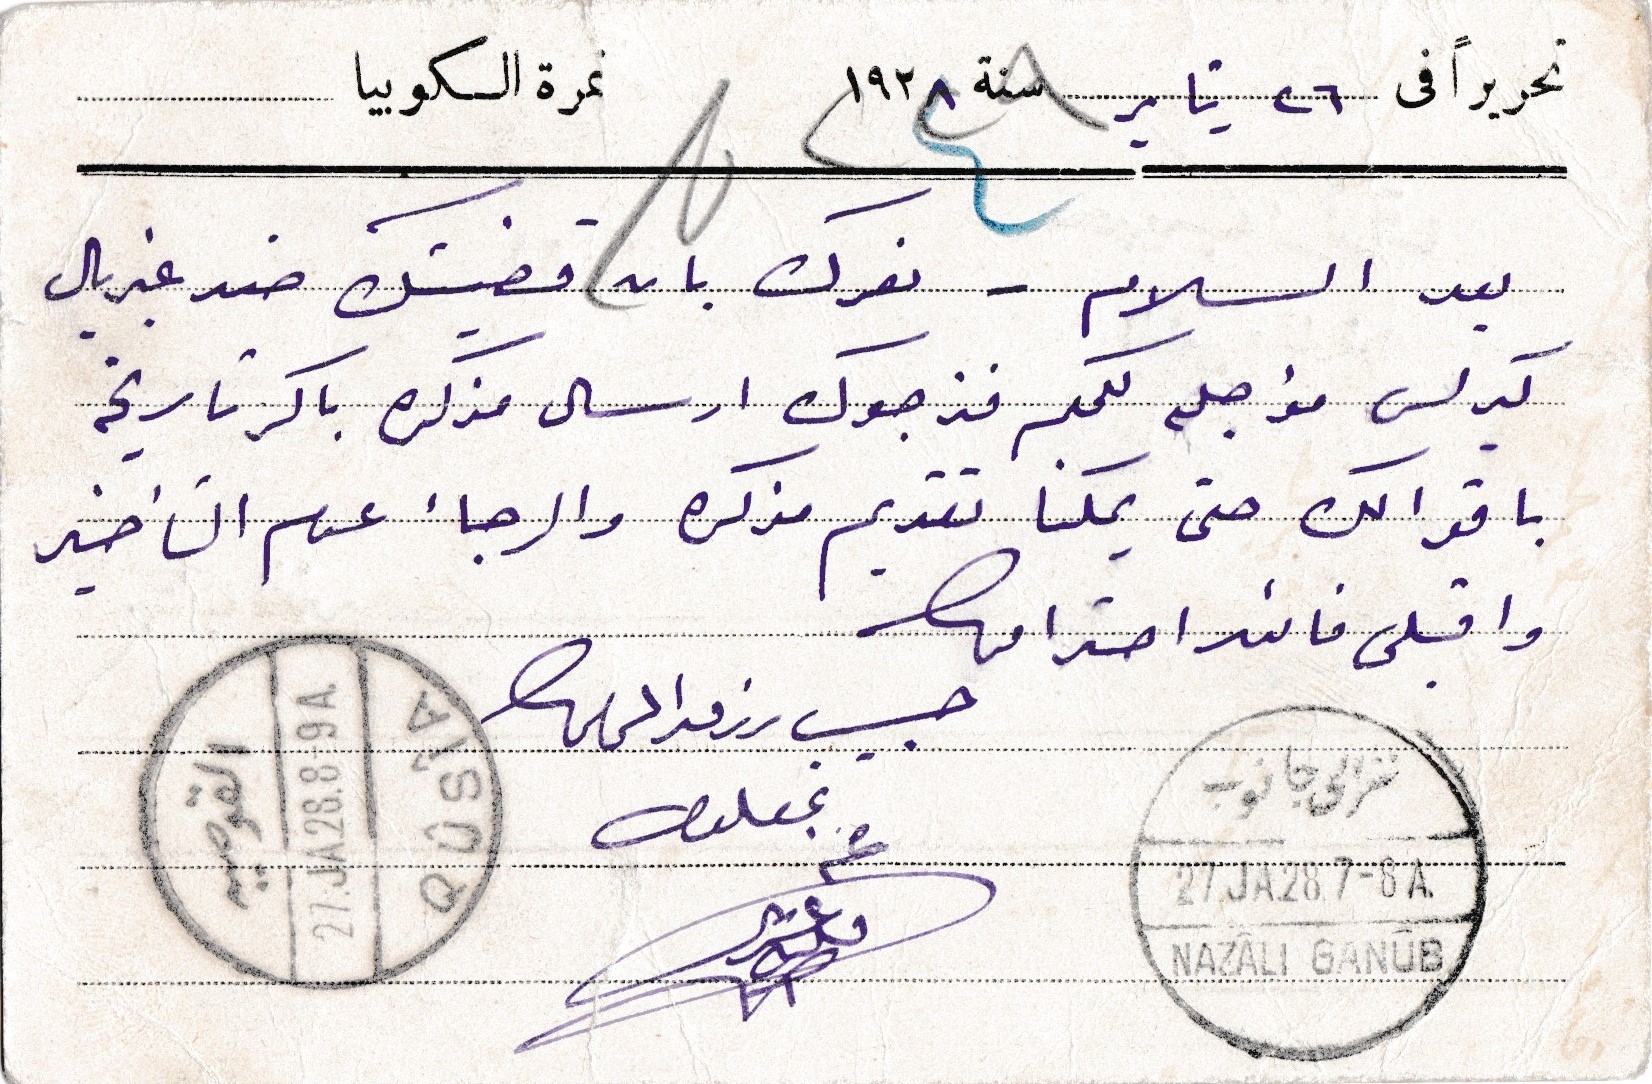 تحريراً فى ٢٦ يناير سنة ١٩٢٨ نمرة السكوبيا
بعد السلام - نعرفك بان قضيتك ضد غبريال
كيرلس مؤجله للحكم فنرجوك ارسال مذكره باكر تاريخه
باقوالك حتى يمكنا تقديم مذكره والرجاء عدم التأخير
واقبلى فائق احترامى
حبيب رزق الله المحامى
بمنفلوط
القوصيه
27.JA.28.8-9A.
QÛSÎYA
نزالى جانوب
27.JA.28.7-8A.
NAZÂLI GANÛB